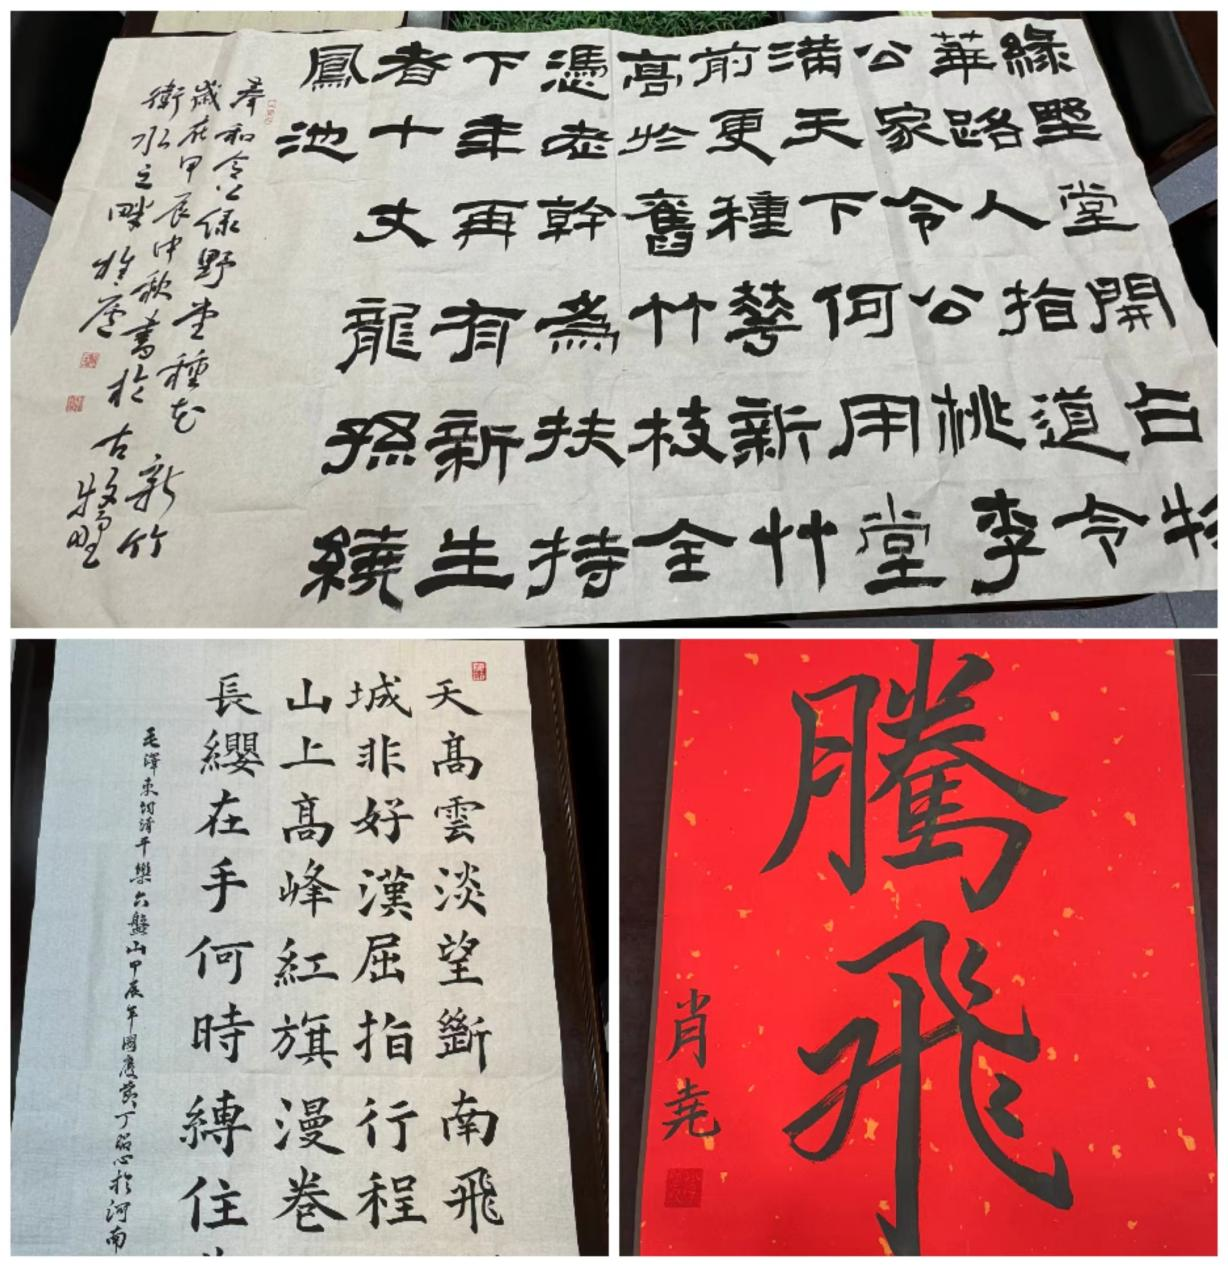 緣墅堂開占物
華路人指道令
公家令公桃李
滿天下何用堂
前更種華新竹
高於舊竹枝全
憑老幹為扶持
下年再有新生
者十丈龍孫繞
鳳池
奉和令公綠野堂種花新竹
歲在甲辰中秋書於古牧野
衛水之畔
天高雲淡望斷南飛
城非好漢屈指行程
山上高峰紅旗漫卷
長纓在手何時縛住
毛澤東詞清平樂六盤山甲辰年國慶黃丁心於河南
騰飛
肖尧